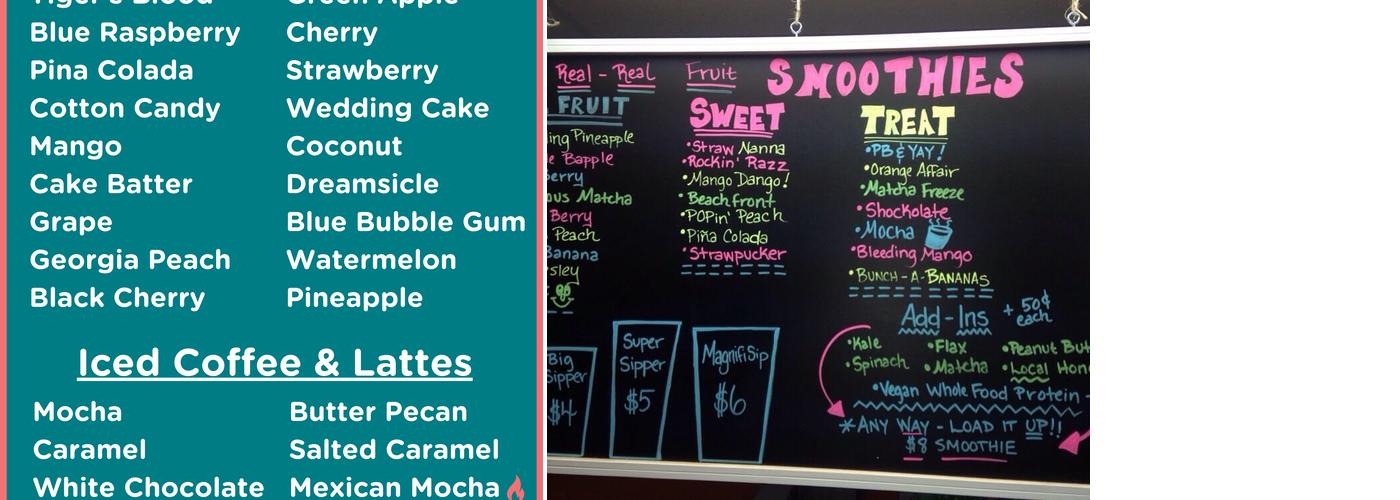 Tiger's Blood Green Apple
Blue Raspberry Cherry
Pina Colada Strawberry
Cotton Candy Wedding Cake
Mango Coconut
Cake Batter Dreamsicle
Grape Blue Bubble Gum
Georgia Peach Watermelon
Black Cherry Pineapple
Iced Coffee & Lattes
Mocha Butter Pecan
Caramel Salted Caramel
White Chocolate Mexican Mocha
Real - Real Fruit SMOOTHIES
FRUIT
ing Pineapple
e Bapple
erry
ous Matcha
Berry
Peach
Banana
sley
SWEET
•Straw Nanna
•Rockin' Razz
•Mango Dango!
•Beachfront
•POPin' Peach
•Piña Colada
•Strawpucker
TREAT
•PB & YAY!
•Orange Affair
•Matcha Freeze
•Shockolate
•Mocha
•Bleeding Mango
•BUNCH-A-BANANAS
Big
Sipper
$4
Super
Sipper
$5
MagnifiSip
$6
Add-Ins + 50¢ each
•Kale •Flax •Peanut But
•Spinach •Matcha •Local Hon
•Vegan Whole Food Protein -
*ANY WAY - LOAD IT UP!!
$8 SMOOTHIE